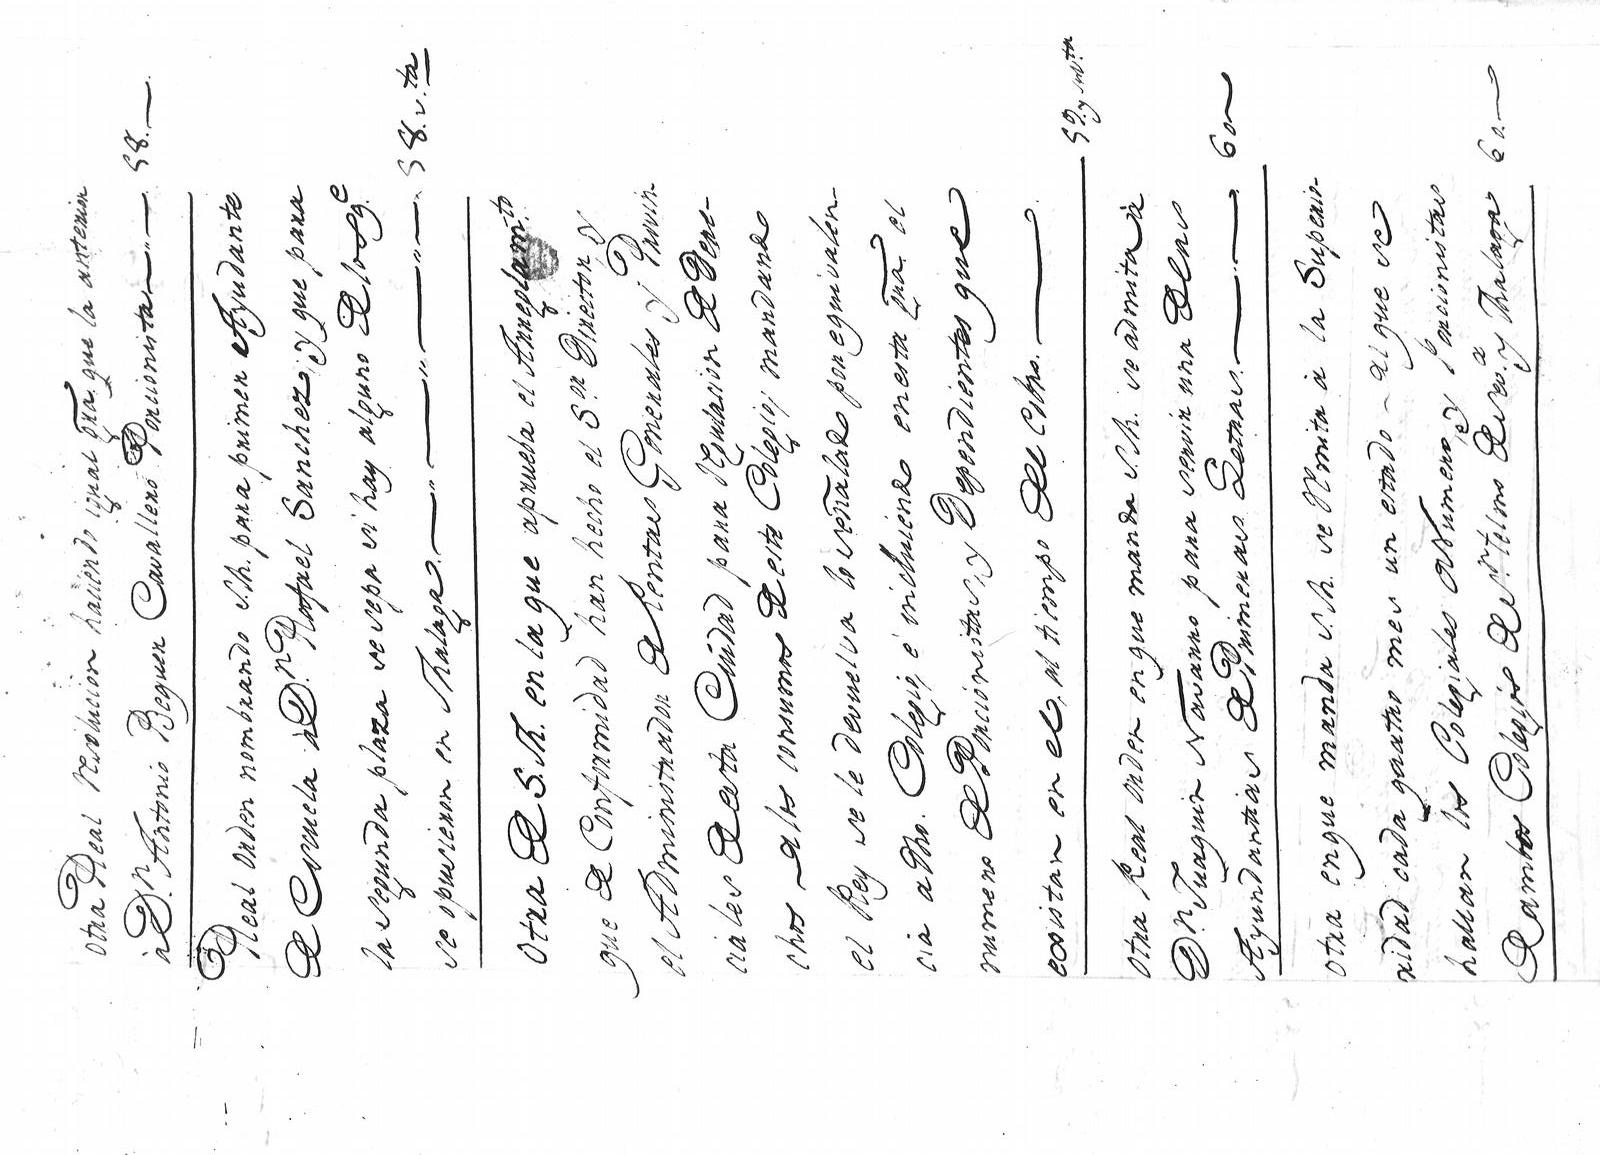 Otra Real resolucion haciendo igual gra. que la anterior
à Dn. Antonio Beguer Cavallero Porcionista 58.
Real orden nombrando S.M. para primer Ayudante
de Escuela à Dn. Rafael Sanchez, y que para
la segunda plaza se sepa si hay alguno de los qe.
se opusieron en Malaga. 58. v.ta
Otra de S.M. en la que aprueba el Arreglam.to
que de Conformidad han hecho el Sor. Director, y
el Administrador de Rentas Generales y Provin-
ciales de esta Ciudad para regulacion de Dere-
chos a los consumos de este Colegio; mandando
el Rey se le devuelva lo señalado por equivalen-
cia a dho. Colegio, è incluiendo en esta gra. el
numero de Porcionistas, y Dependientes que
existan en el, al tiempo del cobro. 59. y vta
Otra Real orden en que manda S.M. se admita à
Dn. Juaquin Navarro para servir una de las
Ayudantias de Primeras Letras. 60
Otra en que manda S.M. se remita à la Superio-
ridad cada quatro mes un estado en el que se
hallan los Colegiales de Numero, y Porcionistas
de ambos Colegios de Sn. Telmo de Seva. y Malaga 60.